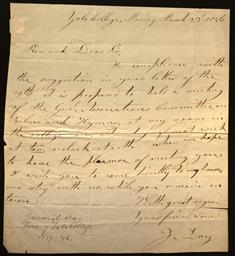 Yale College, Monday, March 23, 1846
Rev. and Dear Sir,
In compliance with
the suggestion in your letter of the
19th it is proposed to hold a meeting
of the Genl. Association Committee on
Psalms and Hymns, at my room in
the college, on of next week
at ten o'clock when we hope
to have the pleasure of meeting you.
I wish you to come directly to my house,
and stay with us while you remain in
town.
With great regard,
Your friend
J. Day